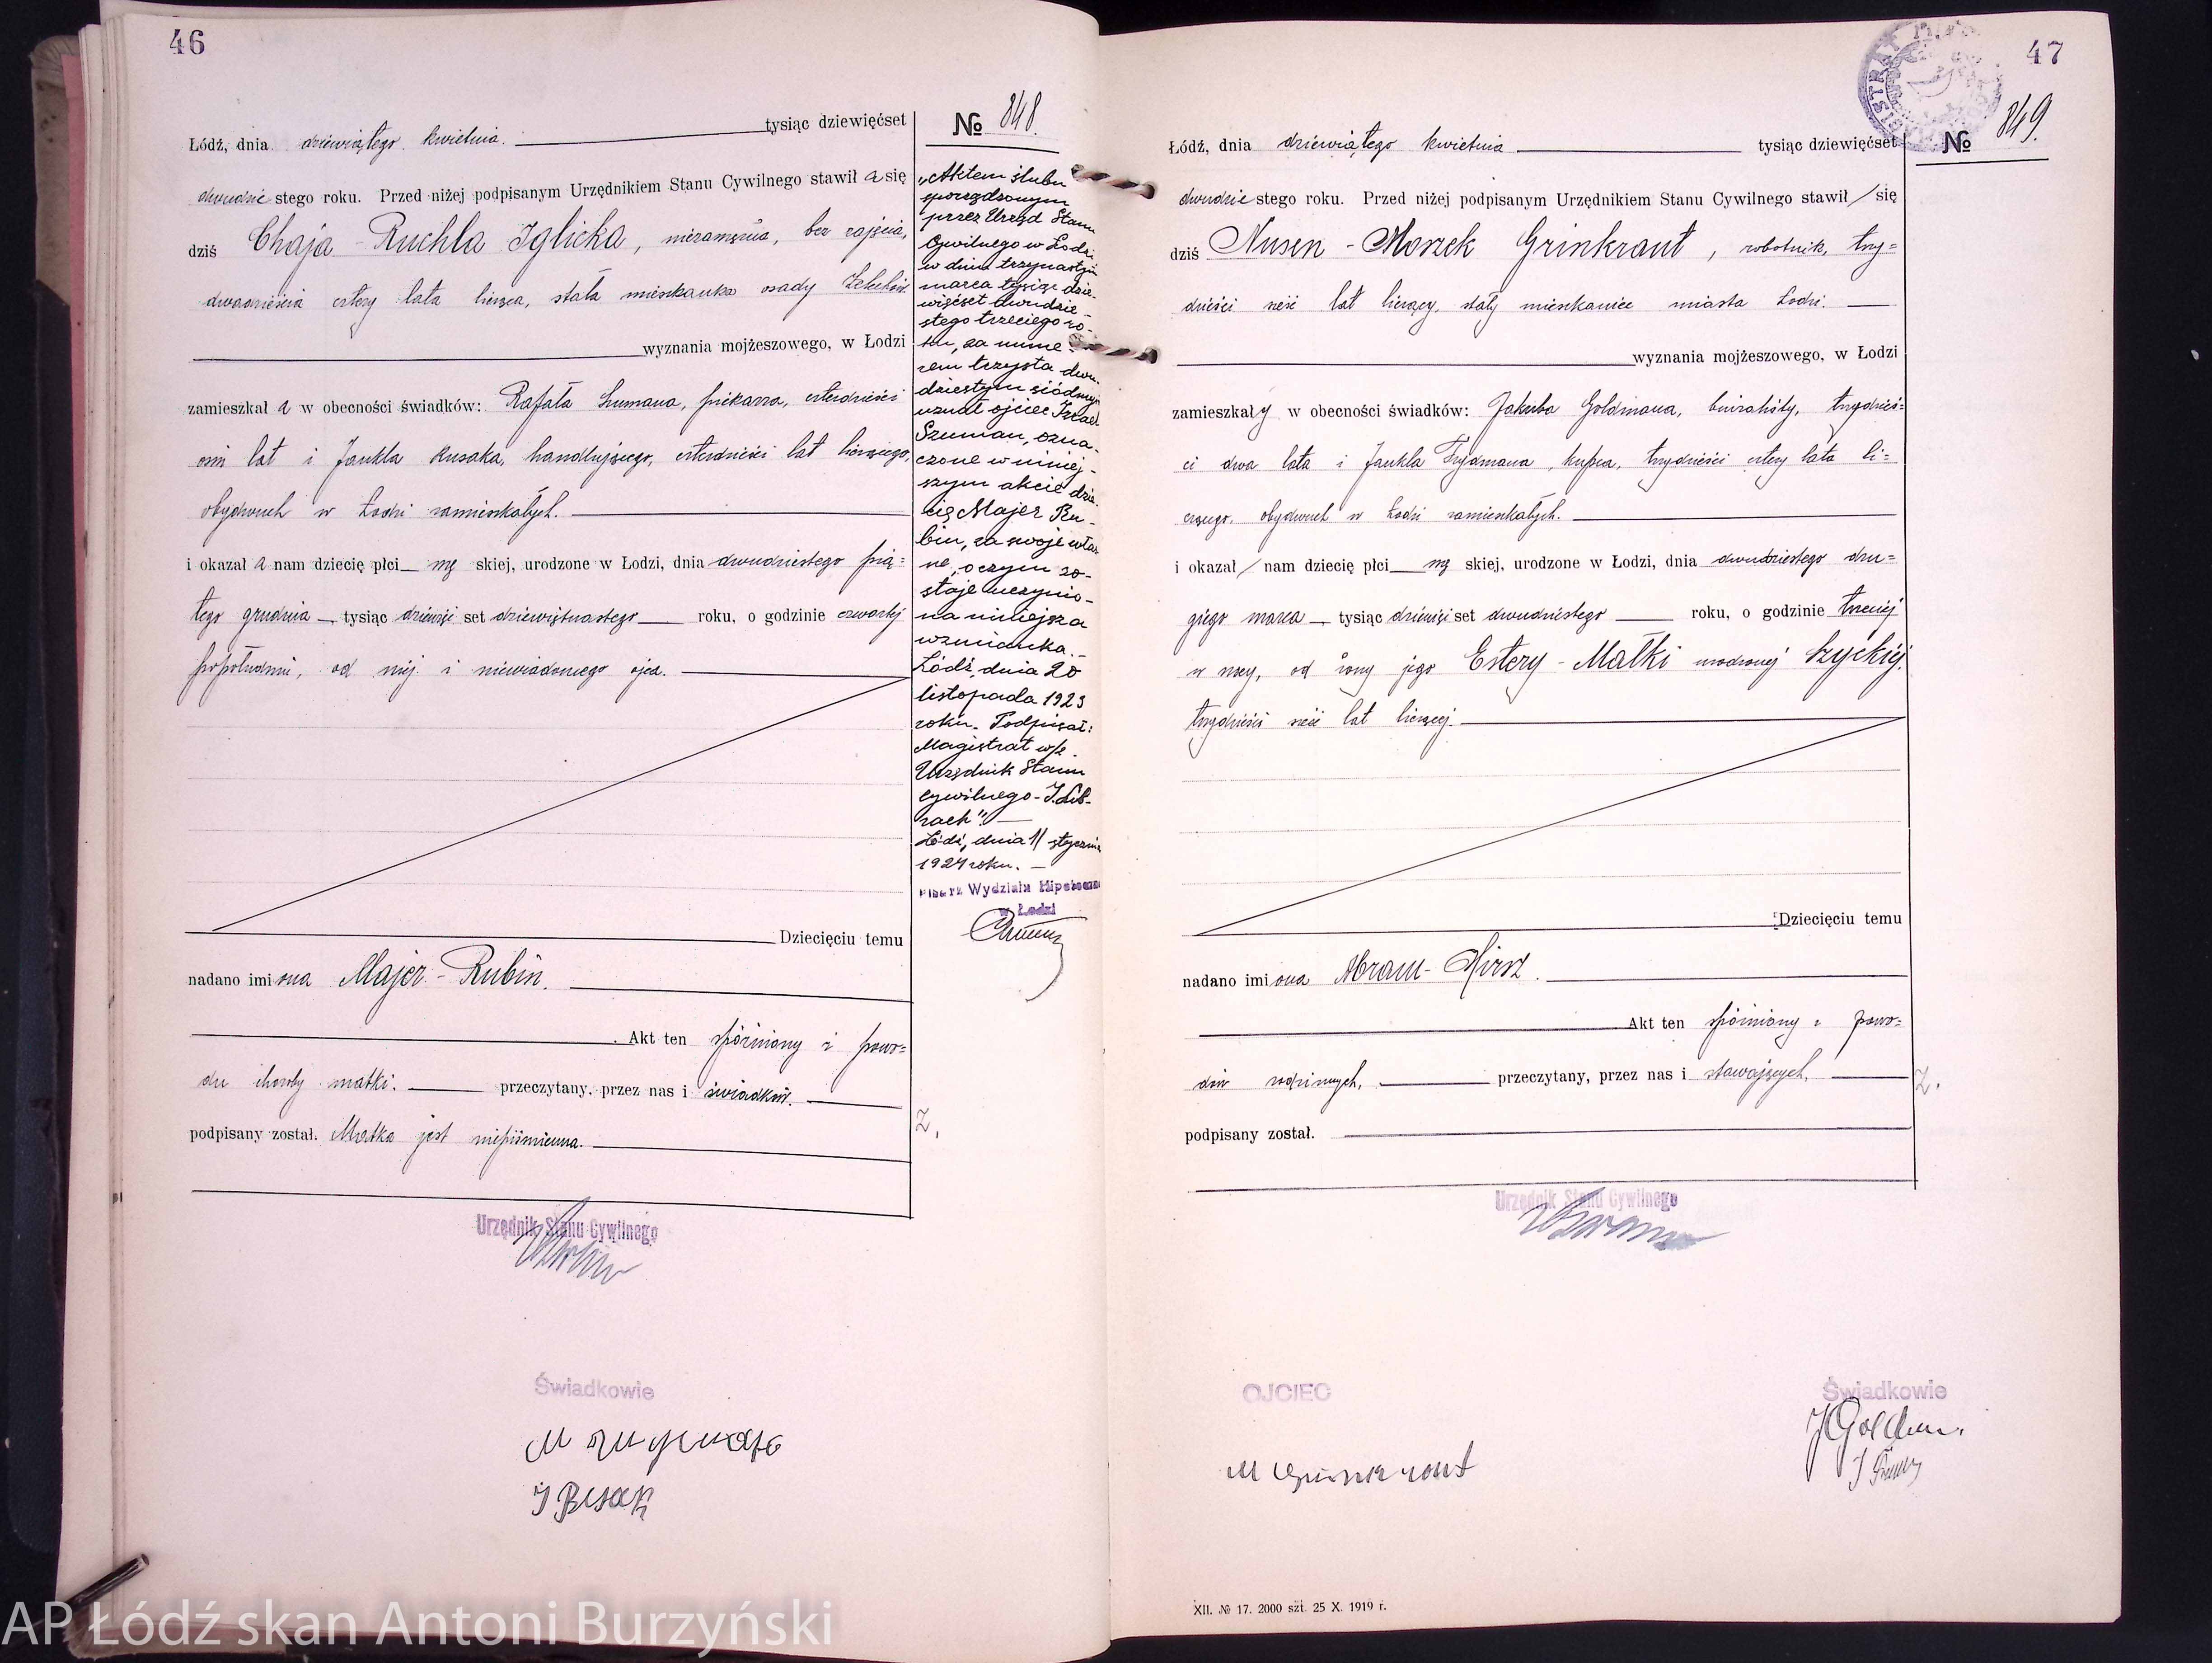 46
Łódź, dnia dziewiątego kwietnia. tysiąc dziewięćset
№ 848.
dwudziestego roku. Przed niżej podpisanym Urzędnikiem Stanu Cywilnego stawiła się
dziś Chaja-Ruchla Iglicka, niezamężna, bez zajęcia,
dwadzieścia cztery lata licząca, stała mieszkanka osady
wyznania mojżeszowego, w Łodzi
zamieszkała w obecności świadków: Rafała Szumana, piekarza, czterdzieści
osm lat i Jankla Kusaka, handlującego, czterdzieści lat liczącego,
obydwuch w Łodzi zamieszkałych.
i okazała nam dziecię płci męskiej, urodzone w Łodzi, dnia dwudziestego pią-
tego grudnia tysiąc dziewięćset dziewiętnastego roku, o godzinie czwartej
popołudniu, od niej i niewiadomego ojca.
Dziecięciu temu
nadano imiona Majer-Rubin.
Akt ten spóźniony z powo-
du choroby matki. przeczytany, przez nas i świadków.
podpisany został. Matka jest niepiśmienna.
Z.
Urzędnik Stanu Cywilnego
Świadkowie
„Aktem ślubu
sporządzonym
przez Urząd Stanu
Cywilnego w Łodzi
w dniu trzynastym
marca tysiąc dzie-
więćset dwudzie-
stego trzeciego ro-
ku, za nume-
rem trzysta dwu-
dziestym siódmym
uznał ojciec Izrael
Szuman, ozna-
czone w niniej-
szym akcie dzie-
cię Majer Ru-
bin, za swoje włas-
ne, o czym zo-
staje uczynio-
na niniejsza
wzmianka.-
Łódź, dnia 20
listopada 1923
roku. Podpisał:
Magistrat w/z.
Urzędnik Stanu
Cywilnego-
Łódź, dnia 11 stycznia
1924 roku.
Pisarz Wydziału Hipoteczn
w Łodzi
47
№ 849.
Łódź, dnia dziewiątego kwietnia tysiąc dziewięćset
dwudziestego roku. Przed niżej podpisanym Urzędnikiem Stanu Cywilnego stawił się
dziś Nusen-Moszek Grinkraut, robotnik, trzy-
dzieści sześć lat liczący, stały mieszkaniec miasta Łodzi.
wyznania mojżeszowego, w Łodzi
zamieszkały w obecności świadków: Jakuba Goldmana, biuralisty, trzydzieś-
ci dwa lata i Jankla Frydmana, kupca, trzydzieści cztery lata li-
czącego, obydwuch w Łodzi zamieszkałych.
i okazał nam dziecię płci męskiej, urodzone w Łodzi, dnia dwudziestego dru-
giego marca tysiąc dziewięćset dwudziestego roku, o godzinie trzeciej
w nocy, od żony jego Estery-Małki urodzonej Szyckiej,
trzydzieści sześć lat liczącej.
Dziecięciu temu
nadano imiona Abram-Hirsz.
Akt ten spóźniony z powo-
dów rodzinnych, przeczytany, przez nas i stawających,
Z.
podpisany został.
Urzędnik Stanu Cywilnego
OJCIEC
Świadkowie
XII. № 17. 2000 szt. 25 X. 1919 r.
AP Łódź skan Antoni Burzyński